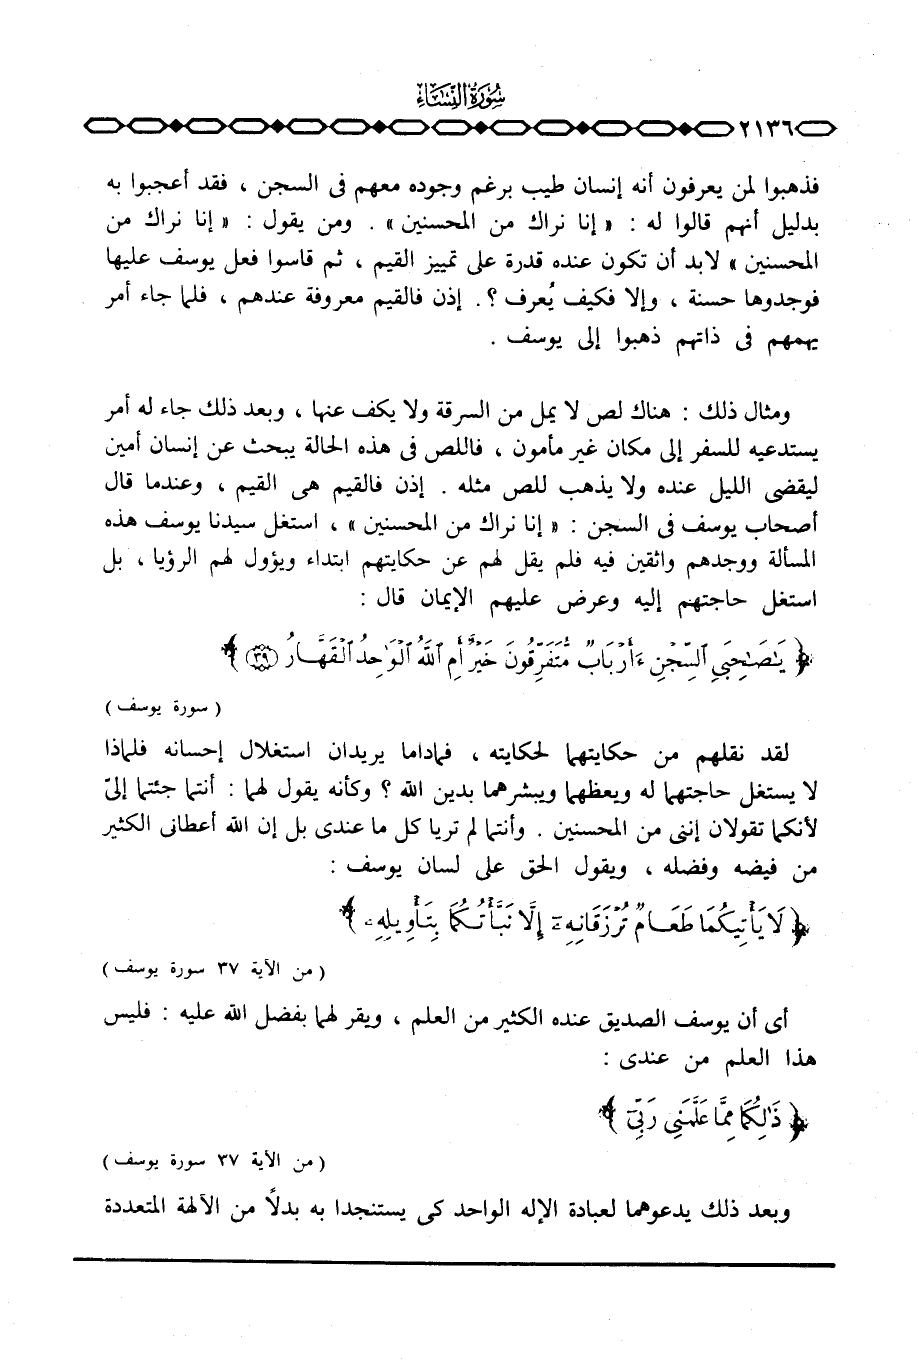 سورة النساء
٢١٣٦
فذهبوا لمن يعرفون أنه إنسان طيب برغم وجوده معهم فى السجن ، فقد أعجبوا به
بدليل أنهم قالوا له : « إنا نراك من المحسنين » . ومن يقول : « إنا نراك من
المحسنين » لابد أن تكون عنده قدرة على تمييز القيم ، ثم قاسوا فعل يوسف عليها
فوجدوها حسنة ، وإلا فكيف يُعرف ؟. إذن فالقيم معروفة عندهم ، فلما جاء أمر
يهمهم فى ذاتهم ذهبوا إلى يوسف .
ومثال ذلك : هناك لص لا يمل من السرقة ولا يكف عنها ، وبعد ذلك جاء له أمر
يستدعيه للسفر إلى مكان غير مأمون ، فاللص فى هذه الحالة يبحث عن إنسان أمين
ليقضى الليل عنده ولا يذهب للص مثله . إذن فالقيم هى القيم ، وعندما قال
أصحاب يوسف فى السجن : « إنا نراك من المحسنين » ، استغل سيدنا يوسف هذه
المسألة ووجدهم واثقين فيه فلم يقل لهم عن حكايتهم ابتداء ويؤول لهم الرؤيا ، بل
استغل حاجتهم إليه وعرض عليهم الإيمان قال :
﴿ يَٰصَٰحِبَىِ ٱلسِّجْنِ ءَأَرْبَابٌ مُّتَفَرِّقُونَ خَيْرٌ أَمِ ٱللَّهُ ٱلْوَٰحِدُ ٱلْقَهَّارُ ٣٩ ﴾
( سورة يوسف )
لقد نقلهم من حكايتهما لحكايته ، فماداما يريدان استغلال إحسانه فلماذا
لا يستغل حاجتهما له ويعظهما ويبشرهما بدين الله ؟ وكأنه يقول لهما : أنتما جئتما إلىّ
لأنكما تقولان إننى من المحسنين . وأنتما لم تريا كل ما عندى بل إن الله أعطانى الكثير
من فيضه وفضله ، ويقول الحق على لسان يوسف :
﴿ لَا يَأْتِيكُمَا طَعَامٌ تُرْزَقَانِهِۦٓ إِلَّا نَبَّأْتُكُمَا بِتَأْوِيلِهِۦ ﴾
( من الآية ٣٧ سورة يوسف )
أى أن يوسف الصديق عنده الكثير من العلم ، ويقر لهما بفضل الله عليه : فليس
هذا العلم من عندى :
﴿ ذَٰلِكُمَا مِمَّا عَلَّمَنِى رَبِّىٓ ﴾
( من الآية ٣٧ سورة يوسف )
وبعد ذلك يدعوهما لعبادة الإله الواحد كى يستنجدا به بدلاً من الآلهة المتعددة